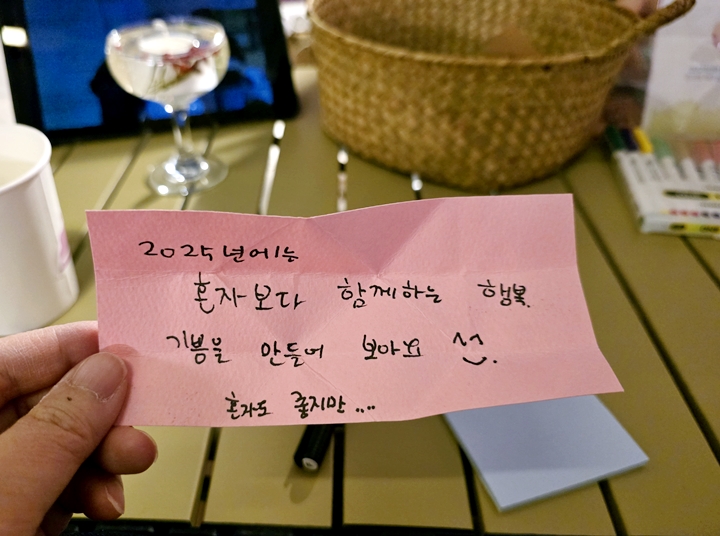 2025년에는
혼자보다 함께하는 행복.
기쁨을 만들어 보아요 ^^.
혼자도 좋지만....